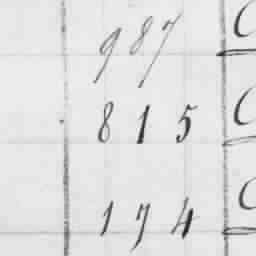 987
815
174